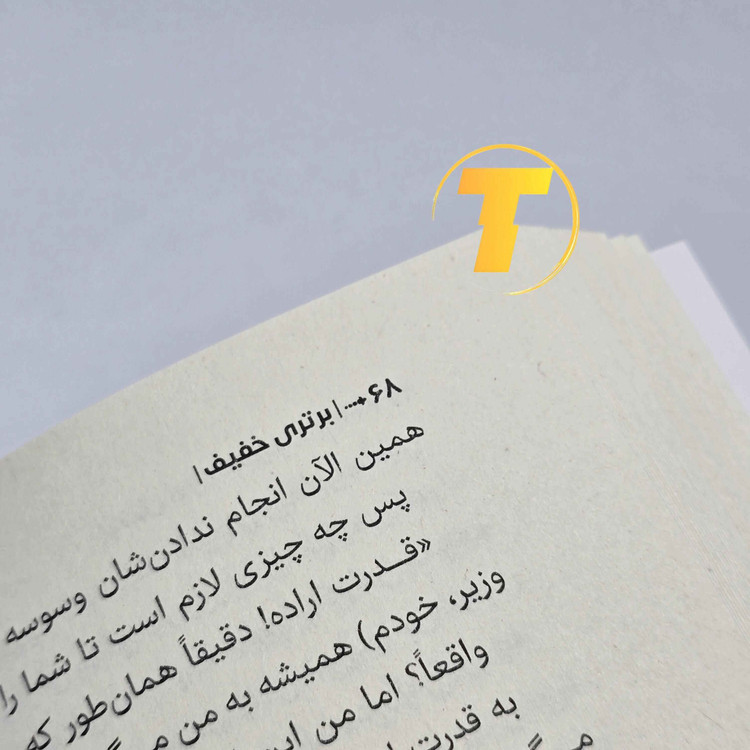 T
۶۸ | برتری خفیف |
همین الآن انجام ندادن‌شان وسوسه
پس چه چیزی لازم است تا شما را
«قـدرت اراده! دقیقاً همان‌طور که
وزیر، خودم) همیشه به من
واقعاً؟ اما من
به قدرت